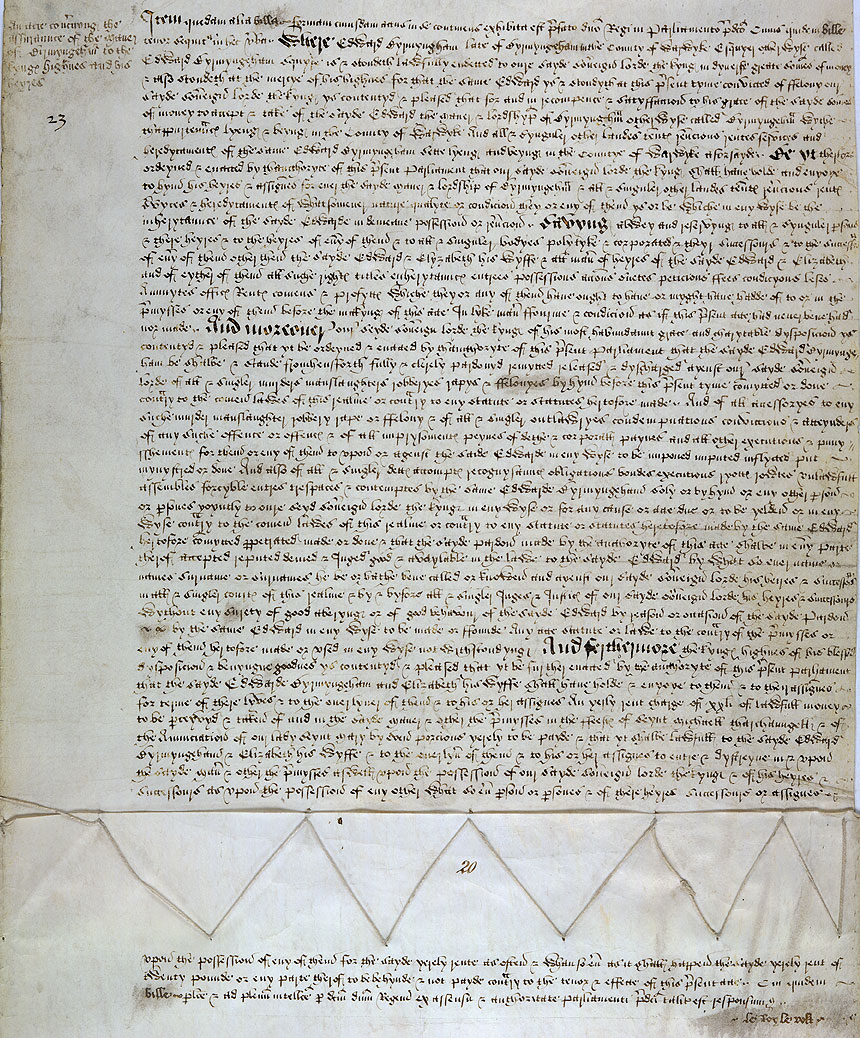 An acte concernyng the
assuraunce of the maner
of Byrmyngehm to the
kyngs highnes and his
heyres
23
Item quedam alia billa formam cuiusdam actus in se continens exhibita est prefato dno Regi in Parliamento pdco Cuius quidem bille
tenor sequitur in hec verba Where Edward Byrmyngham late of Byrmyngeham in the County of Warwyke Esquyer other wyse called
Edward Byrmyngeham Esquyer is & stondeth lawfully endettyd to oure sayde soveraign lorde the kyng in dyverse greate somes of money
& also stondeth at the mercye of his highnes for that the same Edward ys & stondyth at this psent tyme convicted of felony our
sayde soveraign lorde the kyng ys contentyd & pleased that for and in recompence & satysfaccion to his grace of the sayde somes
of money to accept & take of the sayde Edward the maner & lordshyp of Byrmyngehm otherwyse called Byrmyngehm Wythe
thappurtenncs lyeng & beyng in the County of Warwyke And all & synguler other landes tents revcions rentes services and
heredytaments of the same Edward Byrmyngeham sette lyeng and beyng in the Countye of Warwyke aforsayde Be yt therfore
ordeyned & enacted by thauctoryte of this psent Parliament that our sayde soveraign lorde the kyng shall have holde and enyoye
to hym his heyres & assignes for ever the sayde maner & lordship of Byrmyngehm & all & singuler other landes tents revcions rents
servyces & heredytaments of whatsomever nature qualyte or condicion they or eny of them ys or be whiche in eny wyse be the
inherytaunce of the sayde Edwarde in demeane possession or revcion Savyng alwey and reservyng to all & synguler psons
& there heyres & to the heyres of eny of them & to all & singuler bodyes polytyke & corporated & theyr successours & to the successors
of eny of them other then the sayde Edward & Elyzabeth his wyffe & all maner of heyres of the sayde Edward & Elizabeth
and of eyther of them all suche ryghts titles enherytaunces entrees possessions accions suetes peticions ffees condycions leses
Annuytes offices Rents comens & profytts whiche they or any of them have ought to have or myght have hadde of to or in the
pmysses or eny of them before the makyng of this acte In lyke maner fourme & condicion as if this psent acte had never bene had
nor made And moreover our seyde soveraign lorde the kyng of his most habundaunt grace and charytable dysposicion ys
contentyd & pleased that yt be ordeyned & enacted by thauctoryte of this psent parliament that the sayde Edward Byrmynge
ham be shalbe & stande fromhensforth fully & clerely pardonyd remytted released & dyscharged ayenst our sayde soveraign
lorde of all & singler murders manslaughters robberyes rapys & ffelonyes by hym before this psent tyme comytted or done
contry to the comen lawes of this realme or contry to eny statute or statutes hertofore made And of all accessoryes to eny
suche murder manslaughter robbery rape or ffelony & of all & singler outlawryes condempnacions convictions & atteynders
of any suche offence or offences & of all imprysoments peynes of dethe & corporall paynes and all other execucions & puny
isshements for them or eny of them to upon or agenst the sade Edwarde in eny wyse to be imposed imputed inflicted put
mynystred or done And also of all & singler detts accompts recognysance obligations bondes execucions ryotts rowtes unlawfull
assembles forcyble entres trespaces & contemptes by the same Edwarde Byrmyngeham solly or by hym or eny other pson
or psones joyntly to oure seyd soveraign lorde the kyng in eny wyse or for any cause or acte due or to be yelden or in eny
wyse contry to the comen lawes of this realme or contry to eny statute or statutes heretofore made by the same Edward
hertofore comytted ppetrated made or done & that the sayde pardon made by the auctoryte of this acte shalbe in eny parte
therof accepted reputed demed & Juged good & avaylable in the lawe to the sayde Edward by what so ever name or
names surname or surnames he be or hathe bene called or knowen and ayenst our sayde soveraign lorde his heires & successors
in all & singler courts of this realme & by & byfore all & singler Juges & Justices of our sayde soveraign lorde his heyres & successours
wythout eny suerty of good aberyng or of good behavour of the sayde Edward by reason or occasion of the sayde Pardon
by the same Edward in eny wyse to be made or ffounde Any acte statute or lawe to the contry of the pmysses or
eny of them hertofore made or used in eny wyse not withstondyng And ferthermore the kyngs highnes of his blessed
dysposicion & benyngne goodnes ys contentyd & pleased that yt be further enacted by the auctoryte of this psent parliament
that the sayde Edwarde Byrmyngeham and Elizabeth his wyffe shall have holde & enyoye to them & to ther assignes
for terme of there lyves & to the over lyver of them & to his or her assignes An yerly rent charge of xxli of lawfull money
to be perceyvyd & taken of and in the sayde maner & other the pmysses in the ffests of Seynt Michaell tharchaungell & of
the Annunciation of our lady seynt Mary by even porcions yerely to be payde & that yt shalbe lawfull to the sayde Edward
Byrmyngeham & Elizabeth his wyffe & to the overlyver of them & to his or her assignes to entre & dystreyne in & upon
the sayde maner & other the pmysses aswell upon the possession of our sayde soveraign lorde the kyng & of his heyres &
successours as upon the possession of eny other what so ever pson or psones & of there heyres successours or assignes
20
upon the possession of eny of them for the sayde yerely rente as often & whan so ever as it shall happen the sayde yerely rent of
twenty pounde or eny parte therof to be behynde & not payde contry to the tenor & effecte of this psent acte Cui quidem
bille plecte & ad plenum intellecte p dcm dnm Regem ex assensu & auctoritate parliamenti pdci taliter est responsum
Le Roy le volt